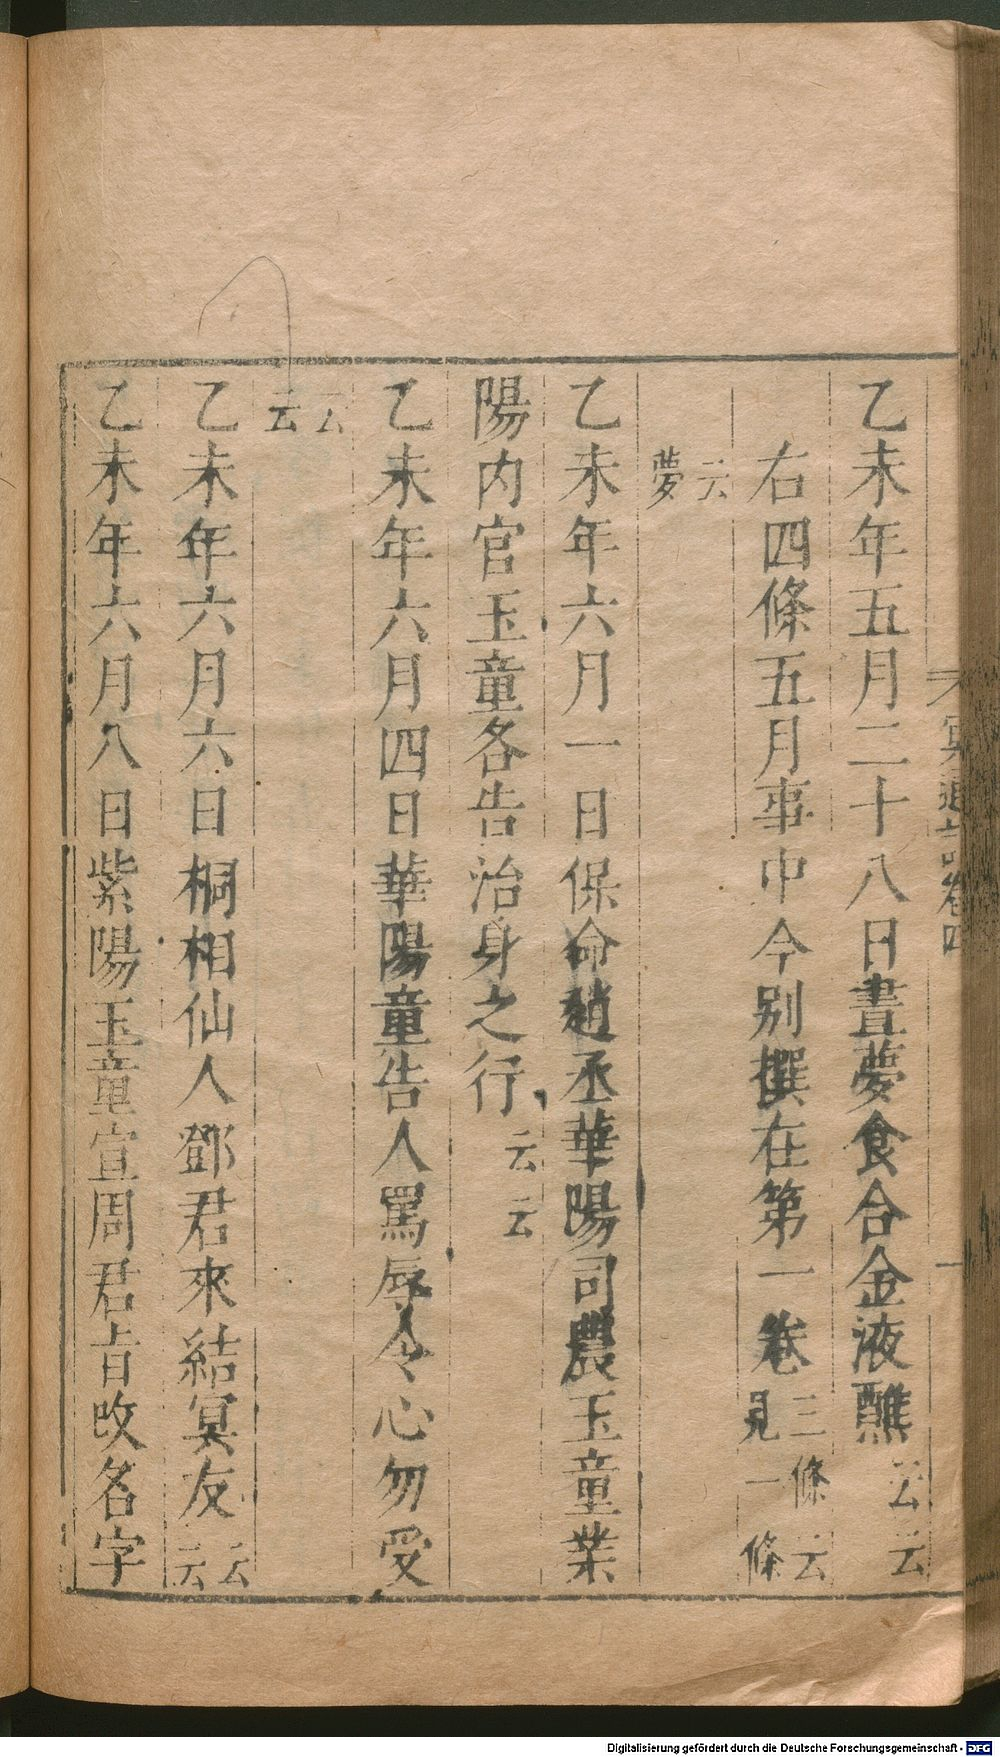 乙未年五月二十八日晝夢食合金液醮云云
右四條五月事中今別撰在第一卷三條云見一條
云夢
乙未年六月一日保命趙丞華陽司農玉童業
陽内官玉童各告治身之行云云
乙未年六月四日華陽童告人罵辱令心勿受
云云
乙未年六月六日桐相仙人鄧君來結冥友云云
乙未年六月八日紫陽玉童宣周君㫖改名字
冥通記卷四
一
Digitalisierung gefördert durch die Deutsche Forschungsgemeinschaft - DFG